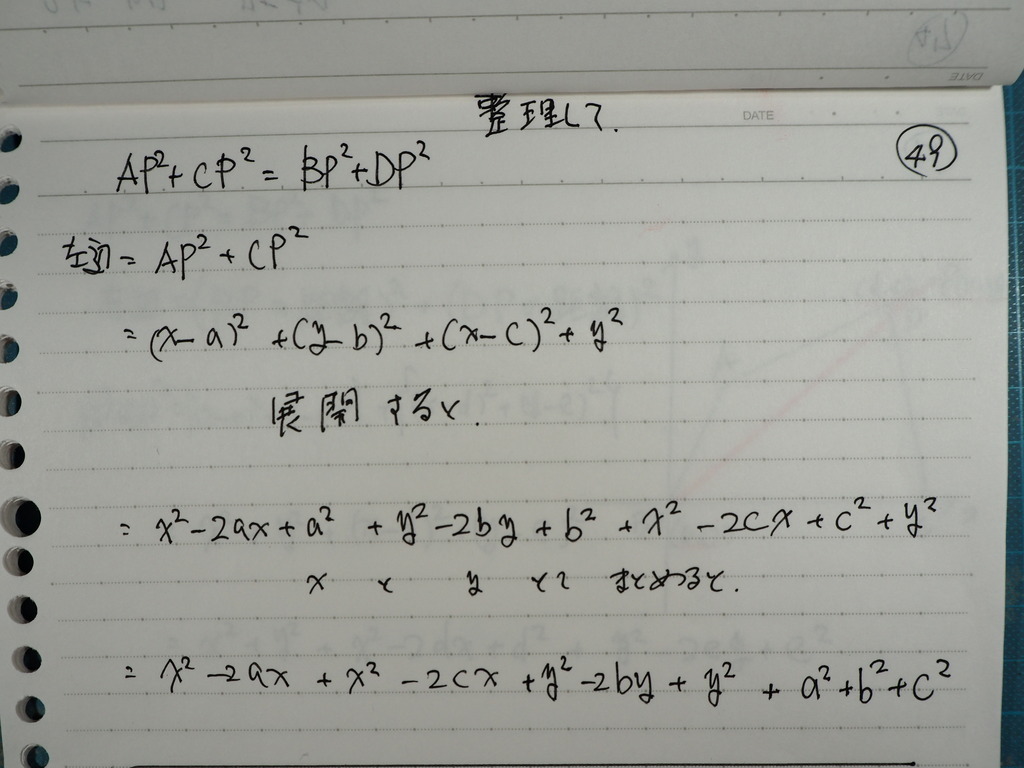 DATE
整理して.
DATE
49
AP²+CP² = BP²+DP²
左辺 = AP² + CP²
= (x-a)² +(y-b)² +(x-c)² + y²
展開すると.
= x²-2ax+a² +y²-2by+b² +x²-2cx+c²+y²
x と y とで まとめると.
= x²-2ax + x²-2cx +y²-2by + y² + a²+b²+c²